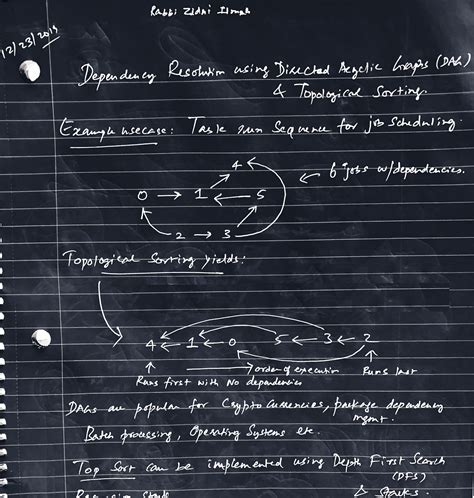 Rabbi Zidni Ilmah
12/23/2019
Dependency Resolution using Directed Acyclic Graphs (DAG)
& Topological Sorting.
Example usecase: Task run Sequence for job Scheduling.
4
6 jobs w/dependencies.
0 → 1 ← 5
2 → 3
Topological Sorting yields:
4 ← 1 ← 0 5 ← 3 ← 2
→ order of execution
Runs last
Runs first with No dependencies
DAGs are popular for Crypto Currencies, package dependency
mgmt.
Batch processing, Operating Systems etc.
Top Sort can be implemented using Depth First Search
(DFS)
& Stacks